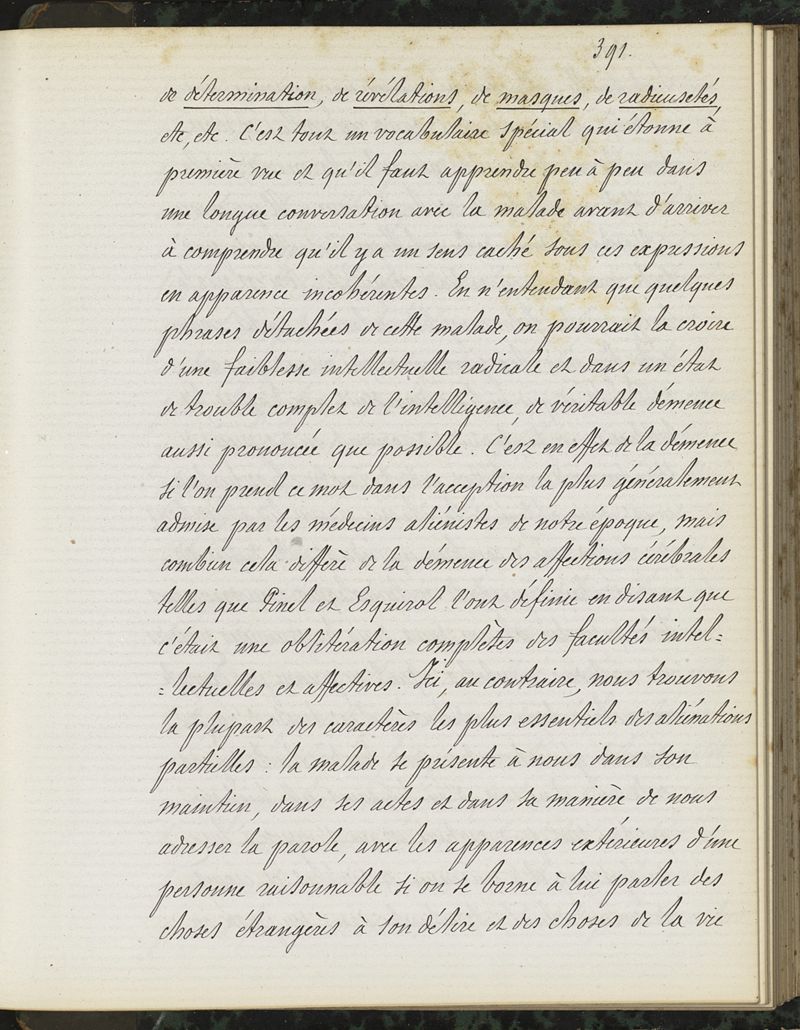 391.
de détermination, de révélations, de masques, de radieusetés,
etc, etc. C'est tout un vocabulaire spécial qui étonne à
première vue et qu'il faut apprendre peu à peu dans
une longue conversation avec la malade avant d'arriver
à comprendre qu'il y a un sens caché sous ces expressions
en apparence incohérentes. En n'entendant que quelques
phrases détachées de cette malade, on pourrait la croire
d'une faiblesse intellectuelle radicale et dans un état
de trouble complet de l'intelligence, de véritable démence
aussi prononcée que possible. C'est en effet de la démence
si l'on prend ce mot dans l'acception la plus généralement
admise par les médecins aliénistes de notre époque, mais
combien cela diffère de la démence des affections cérébrales
telles que Pinel et Esquirol l'ont définie en disant que
c'était une oblitération complètes des facultés intel=
=lectuelles et affectives. Ici, au contraire, nous trouvons
la plupart des caractères les plus essentiels des aliénations
partielles : la malade se présente à nous dans son
maintien, dans ses actes et dans sa manière de nous
adresser la parole, avec les apparences extérieures d'une
personne raisonnable si on se borne à lui parler des
choses étrangères à son délire et des choses de la vie